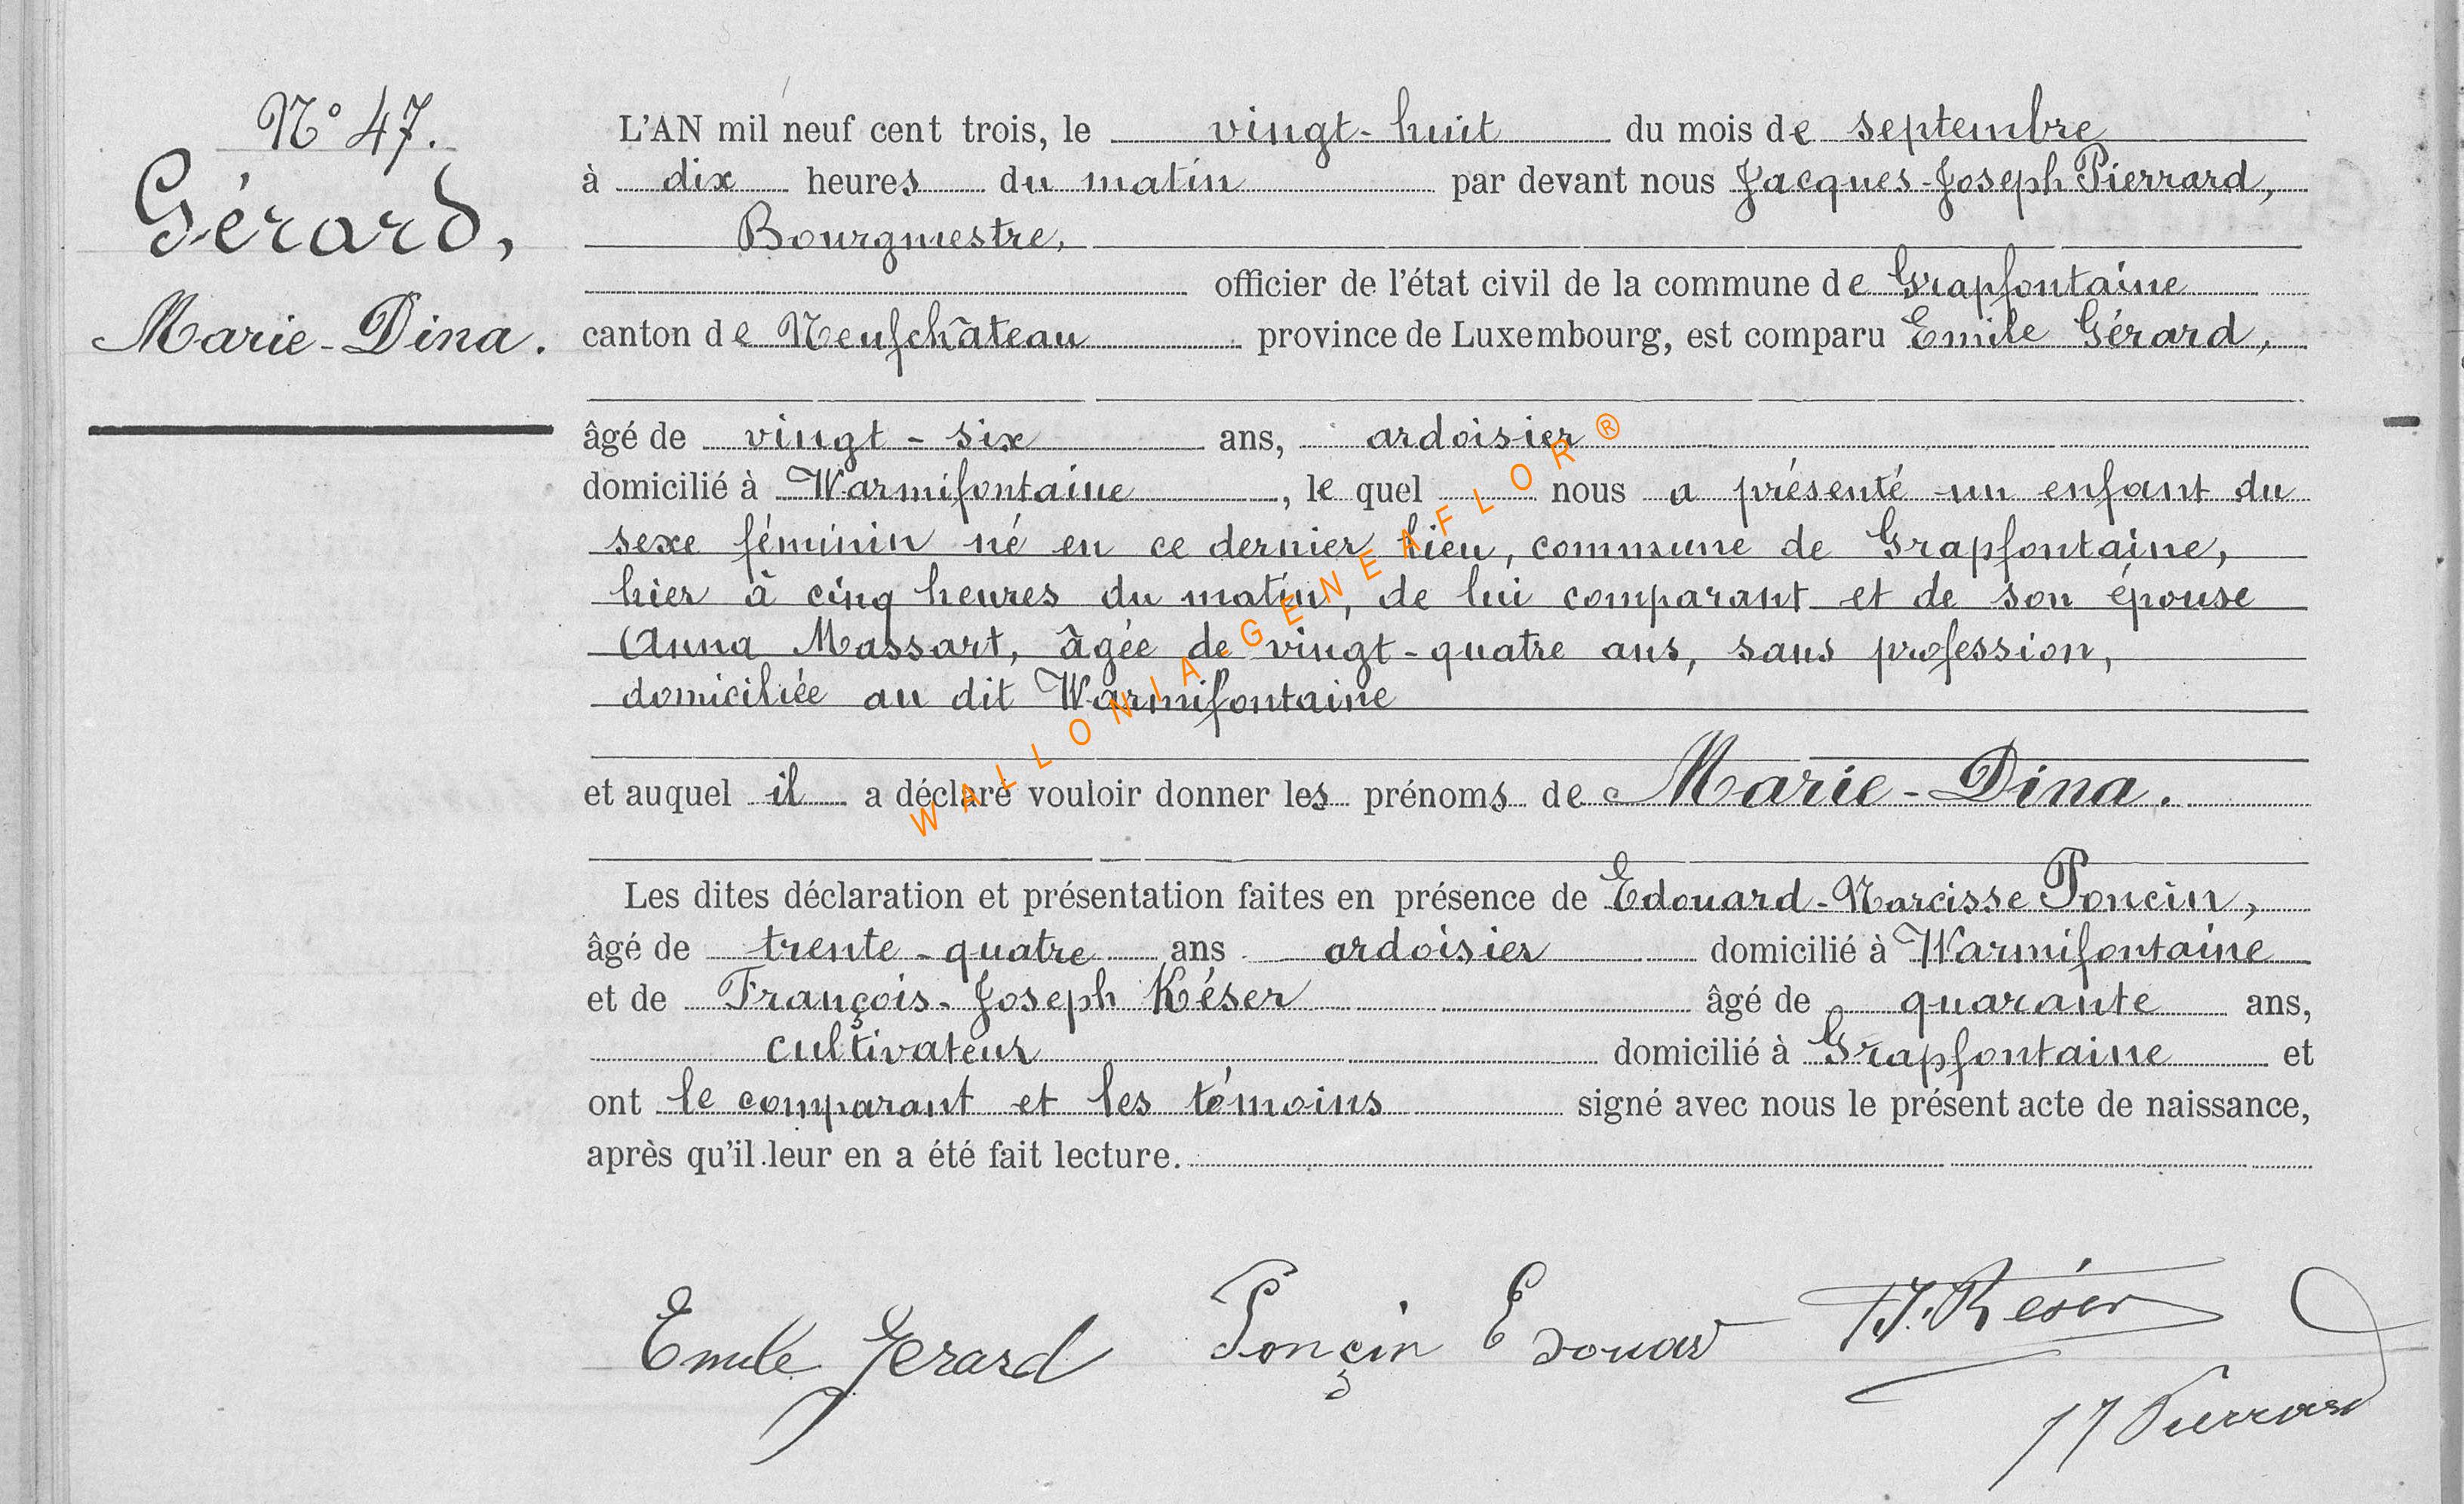 N° 47.
Gérard,
Marie-Dina.
L'AN mil neuf cent trois, le vingt-huit du mois de septembre
à dix heures du matin par devant nous Jacques-Joseph Pierrard,
Bourgmestre,
officier de l'état civil de la commune de Grapfontaine
canton de Neufchâteau province de Luxembourg, est comparu Emile Gérard,
âgé de vingt-six ans, ardoisier
domicilié à Warmifontaine, le quel nous a présenté un enfant du
sexe féminin né en ce dernier lieu, commune de Grapfontaine,
hier à cinq heures du matin, de lui comparant et de son épouse
Anna Massart, âgée de vingt-quatre ans, sans profession,
domiciliée au dit Warmifontaine
et auquel il a déclaré vouloir donner les prénoms de Marie-Dina.
Les dites déclaration et présentation faites en présence de Edouard-Narcisse Poncin,
âgé de trente-quatre ans ardoisier domicilié à Warmifontaine
et de François-Joseph Késer âgé de quarante ans,
cultivateur domicilié à Grapfontaine et
ont le comparant et les témoins signé avec nous le présent acte de naissance,
après qu'il leur en a été fait lecture.
Emile Gerard Ponçin Edouard FJ. Késer
JJ Pierrard
WALLONIA GENEAFLOR ®